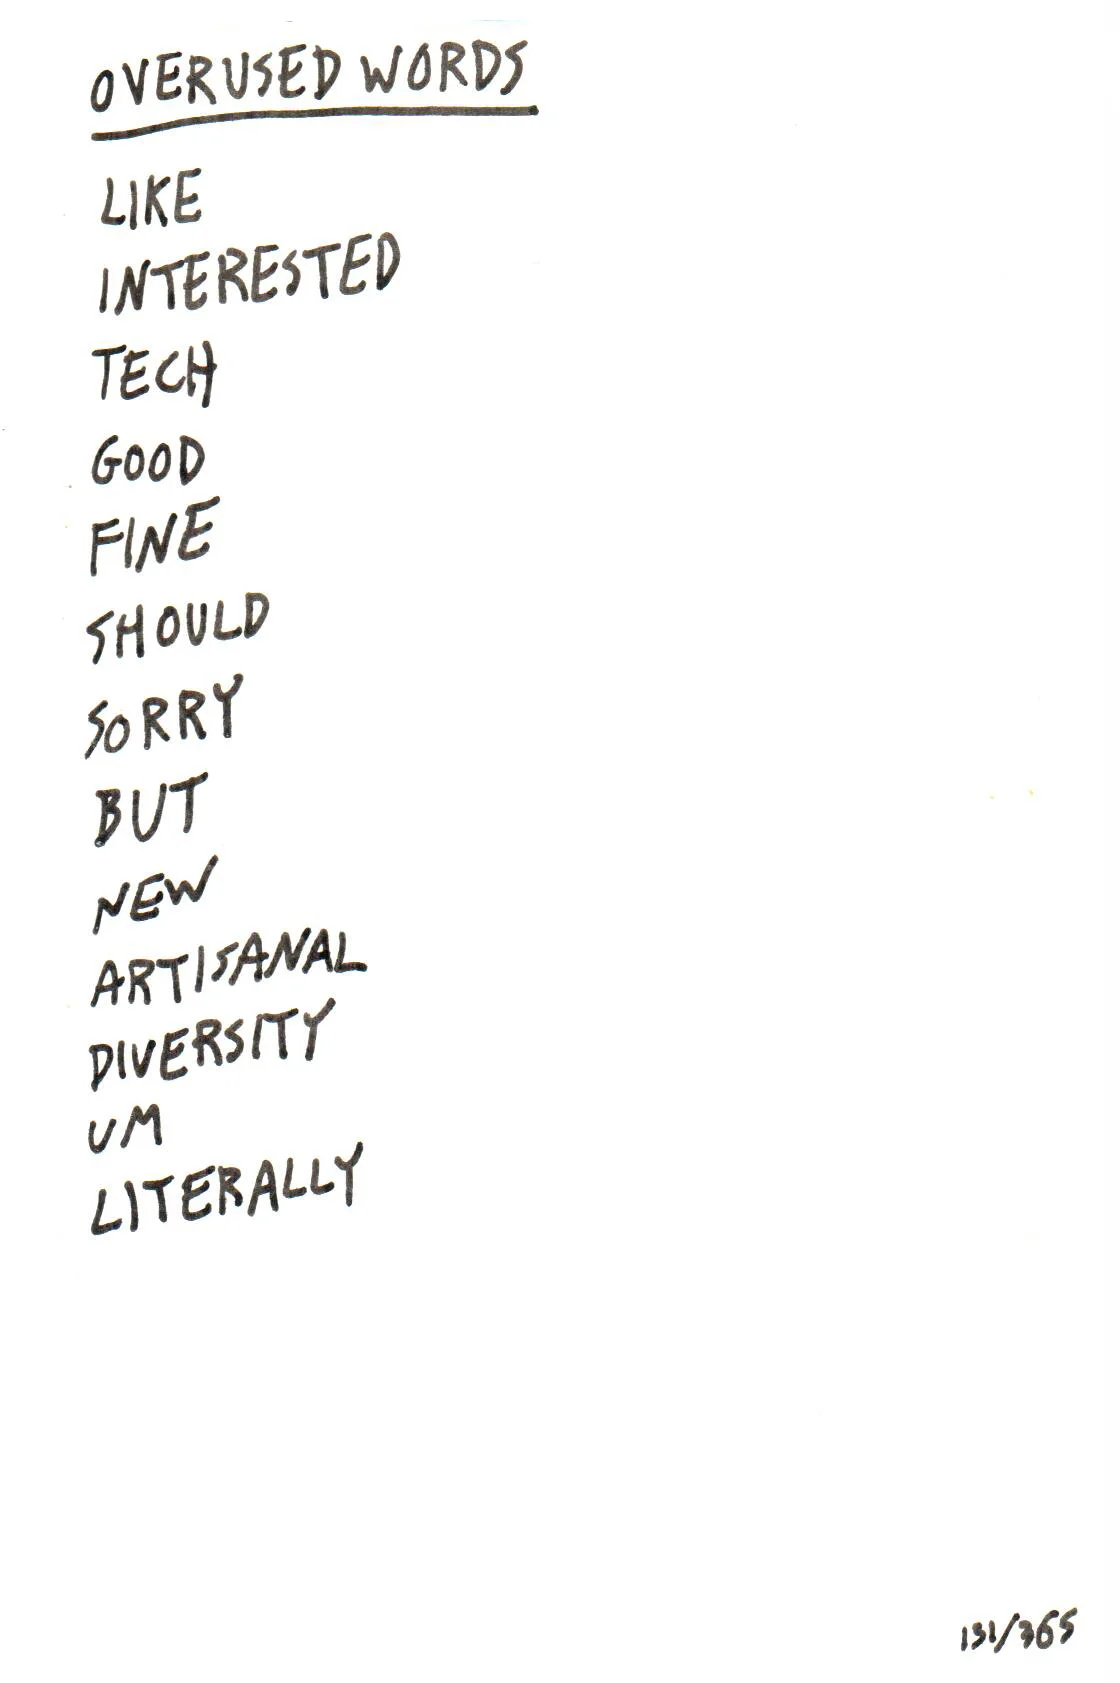 OVERUSED WORDS
LIKE
INTERESTED
TECH
GOOD
FINE
SHOULD
SORRY
BUT
NEW
ARTISANAL
DIVERSITY
UM
LITERALLY
131/365